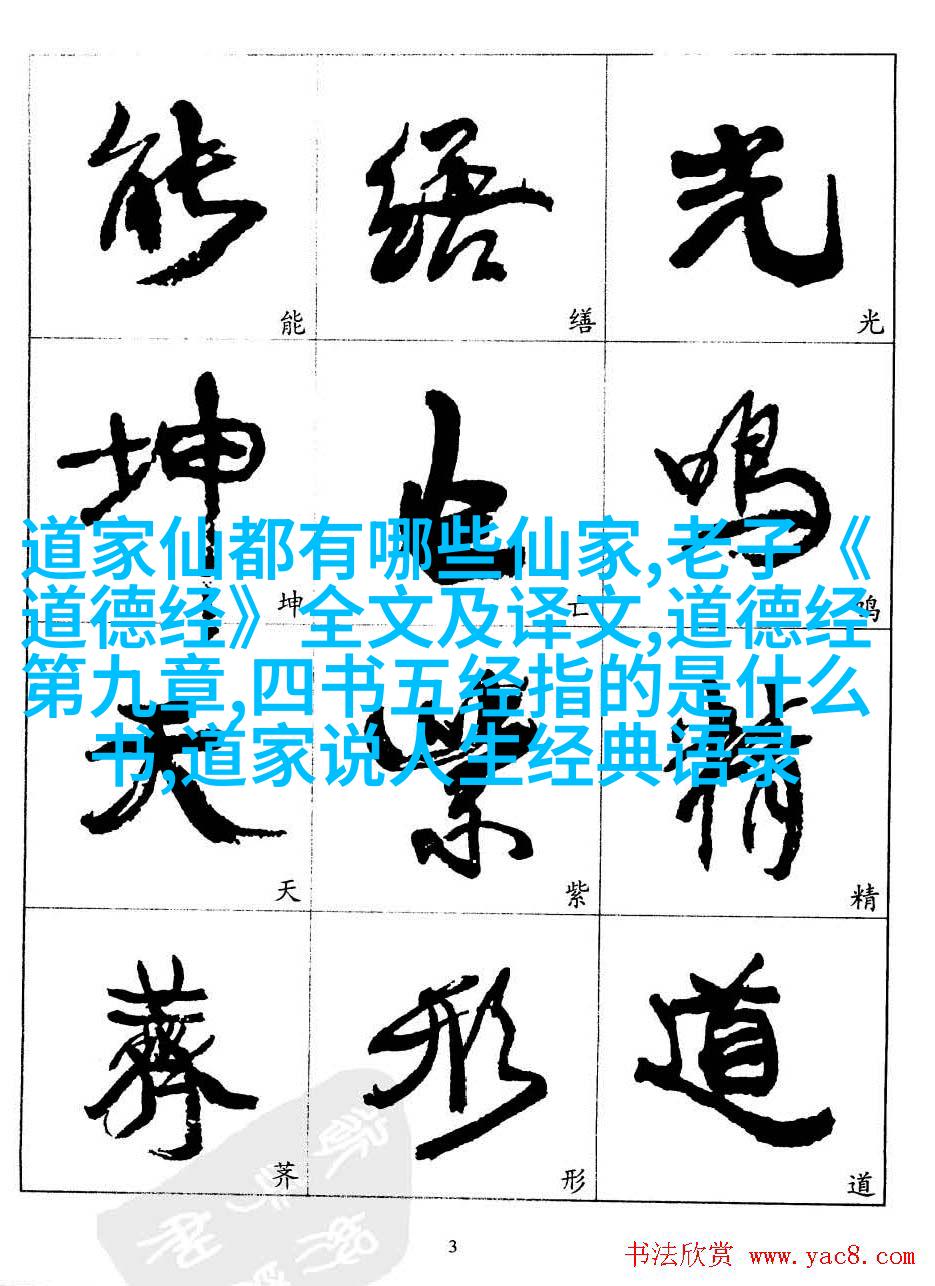 能 繕 光
能 缮 光
坤 亡 鳴
道家仙都有哪些仙家,老子《
道德经》全文及译文,道德经
第九章,四书五经指的是什么
书,道家说人生经典语录
坤 亡 鸣
天 紫 精
天 紫 精
薺 形 道
荠 形 道
3
书法欣赏 www.yac8.com